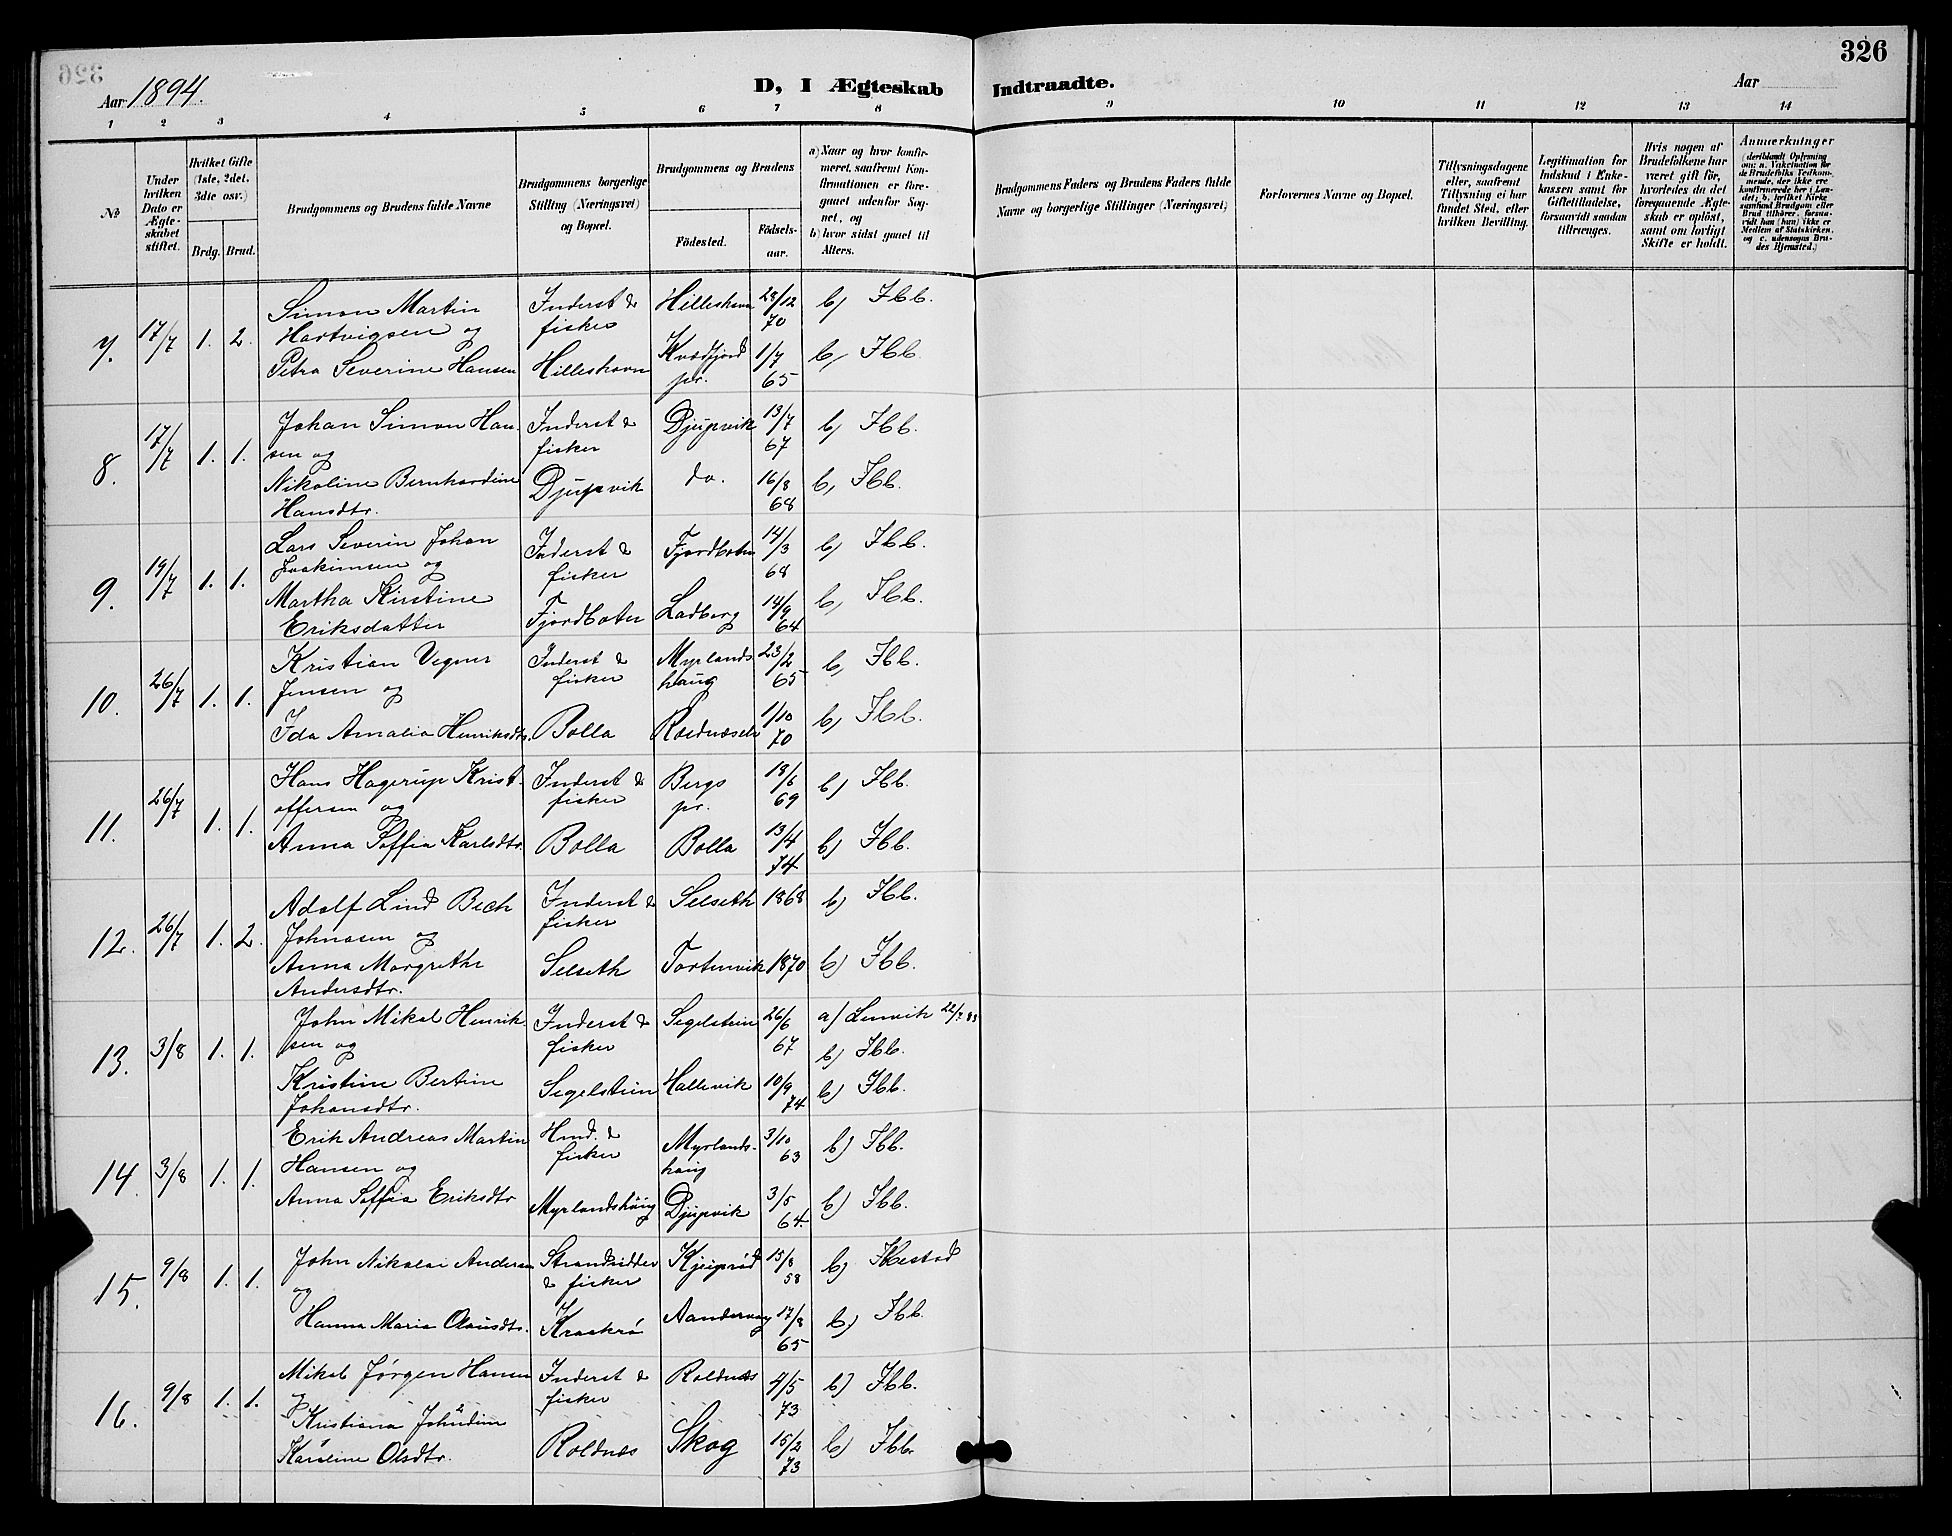 326
Aar 1894.
D, I Ægteskab Indtraadte.
Aar
1 2 3 4 5 6 7 8 9 10 11 12 13 14
№
Under hvilken Dato er Ægteskabet stiftet.
Hvilket Gifte (1ste, 2det, 3die osv.)
Brdg. Brud.
Brudgommens og Brudens fulde Navne
Brudgommens borgerlige Stilling (Næringsvei) og Bopæl.
Brudgommens og Brudens
Fødested.
Fødselsaar.
a) Naar og hvor konfirmeret, saafremt Konfirmationen er foregaaet udenfor Sognet, og
b) hvor sidst gaaet til Alters.
Brudgommens Faders og Brudens Faders fulde Navne og borgerlige Stillinger (Næringsvei)
Forlovernes Navne og Bopæl.
Tillysningsdagene eller, saafremt Tillysning ei har fundet Sted, efter hvilken Bevilling.
Legitimation for Indskud i Enkekassen samt for Giftetilladelse, forsaavidt saadan tiltrænges.
Hvis nogen af Brudefolkene har været gift før, hvorledes da det foregaaende Ægteskab er opløst, samt om lovligt Skifte er holdt.
Anmærkninger
7. 17/7 1. 2. Simon Martin Inderst & Hilleshavn 28/12 b) Ibb.
Hartvigsen og fisker 70
Petra Severine Hansen Hilleshavn Kvædfjord 1/7 b, Ibb.
pr. 65
8. 17/7 1. 1. Johan Simon Han- Inderst & Djupvik 13/7 b) Ibb.
sen og fisker 67
Nikoline Bernhardine Djupvik do. 16/8 b, Ibb.
Hansdtr. 68
9. 19/7 1. 1. Lars Severin Johan Inderst & Fjordbotn 14/3 b) Ibb.
Joakimsen og fisker 68
Martha Kirstine Fjordboten Ladberg 14/9 b, Ibb.
Eriksdatter 64
10. 26/7 1. 1. Kristian Vegner Inderst & Myrlands 23/2 b, Ibb.
Jensen og fisker haug 65
Ida Amalia Henriksdtr. Bolla 1/10 b) Ibb.
70
11. 26/7 1. 1. Hans Hagerup Krist- Inderst & Bergs 18/6 b) Ibb.
offersen og fisker pr. 69
Anna Soffia Karlsdtr. Bolla Bolla 13/4 b) Ibb.
74
12. 26/7 1. 2. Adolf Lind Bech Inderst & Selseth 1868 b) Ibb.
Johnasen og fisker
Anna Margrethe Selseth 1870 b) Ibb.
Andersdtr.
13. 3/8 1. 1. John Mikal Henrik- Inderst & Segelstein 26/6 a) Lenvik
sen og fisker 67 b) Ibb.
Kristine Bertine Segelstein Hallevik 10/9 b) Ibb.
Johansdtr. 74
14. 3/8 1. 1. Erik Andreas Martin Hmd. & Myrlands- 3/10 b) Ibb.
Hansen og fisker haug 63
Anna Soffia Eriksdtr Myrlandshaug Djupvik 3/5 b) Ibb.
64.
15. 9/8 1. 1. John Nikolai Andersen Strandsidder Kjeiprød 15/8 b) Ibestad
og & fisker 58
Hanna Maria Olausdtr. Kraakrø Aandervaag 17/8 b) Ibb.
65
16. 9/8 1. 1. Mikal Jørgen Hansen Inderst & Roldnæs 4/5 b) Ibb.
og fisker 73
Kristiana
Karoline Olsdtr. Roldnæs Skog 15/2 b) Ibb.
73